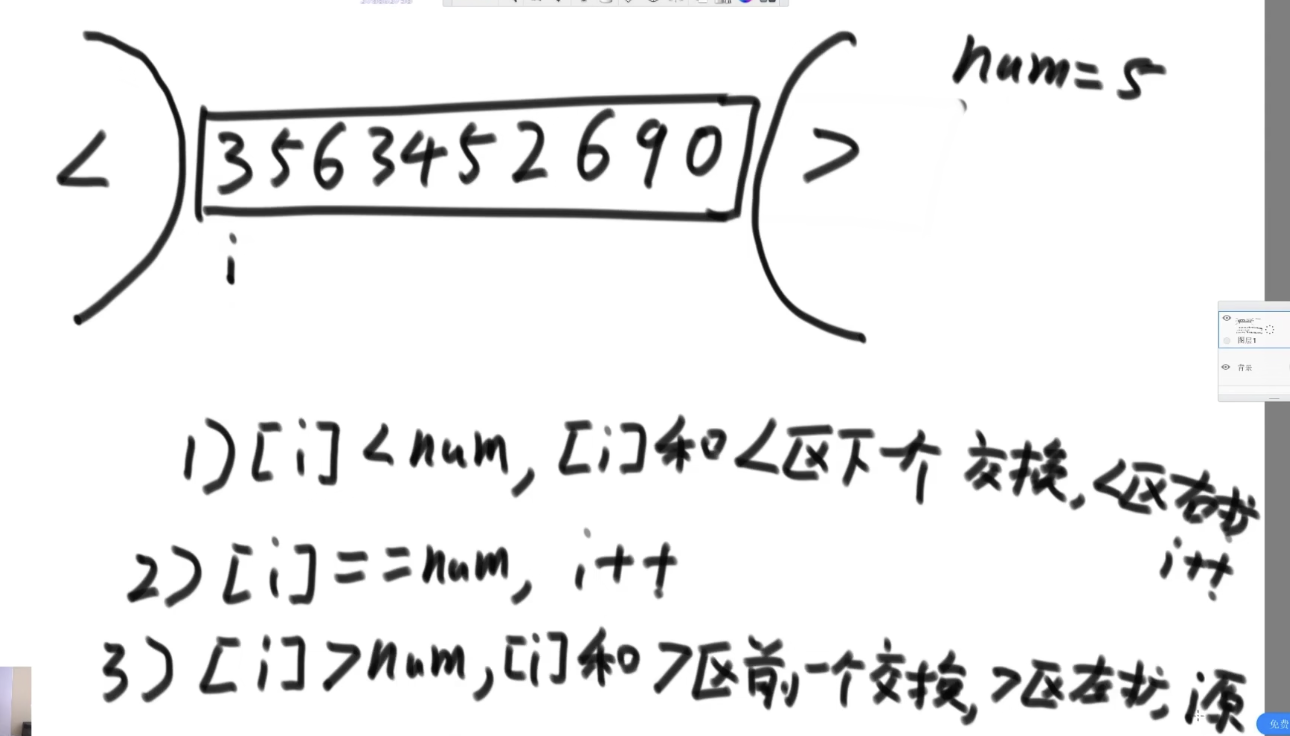 num=5
< 3 5 6 3 4 5 2 6 9 0 >
i
图层1
背景
1) [i] < num, [i]和<区下一个 交换, <区右扩
i++
2) [i] == num, i++
3) [i] > num, [i]和>区前一个交换, >区左扩, i原
免费